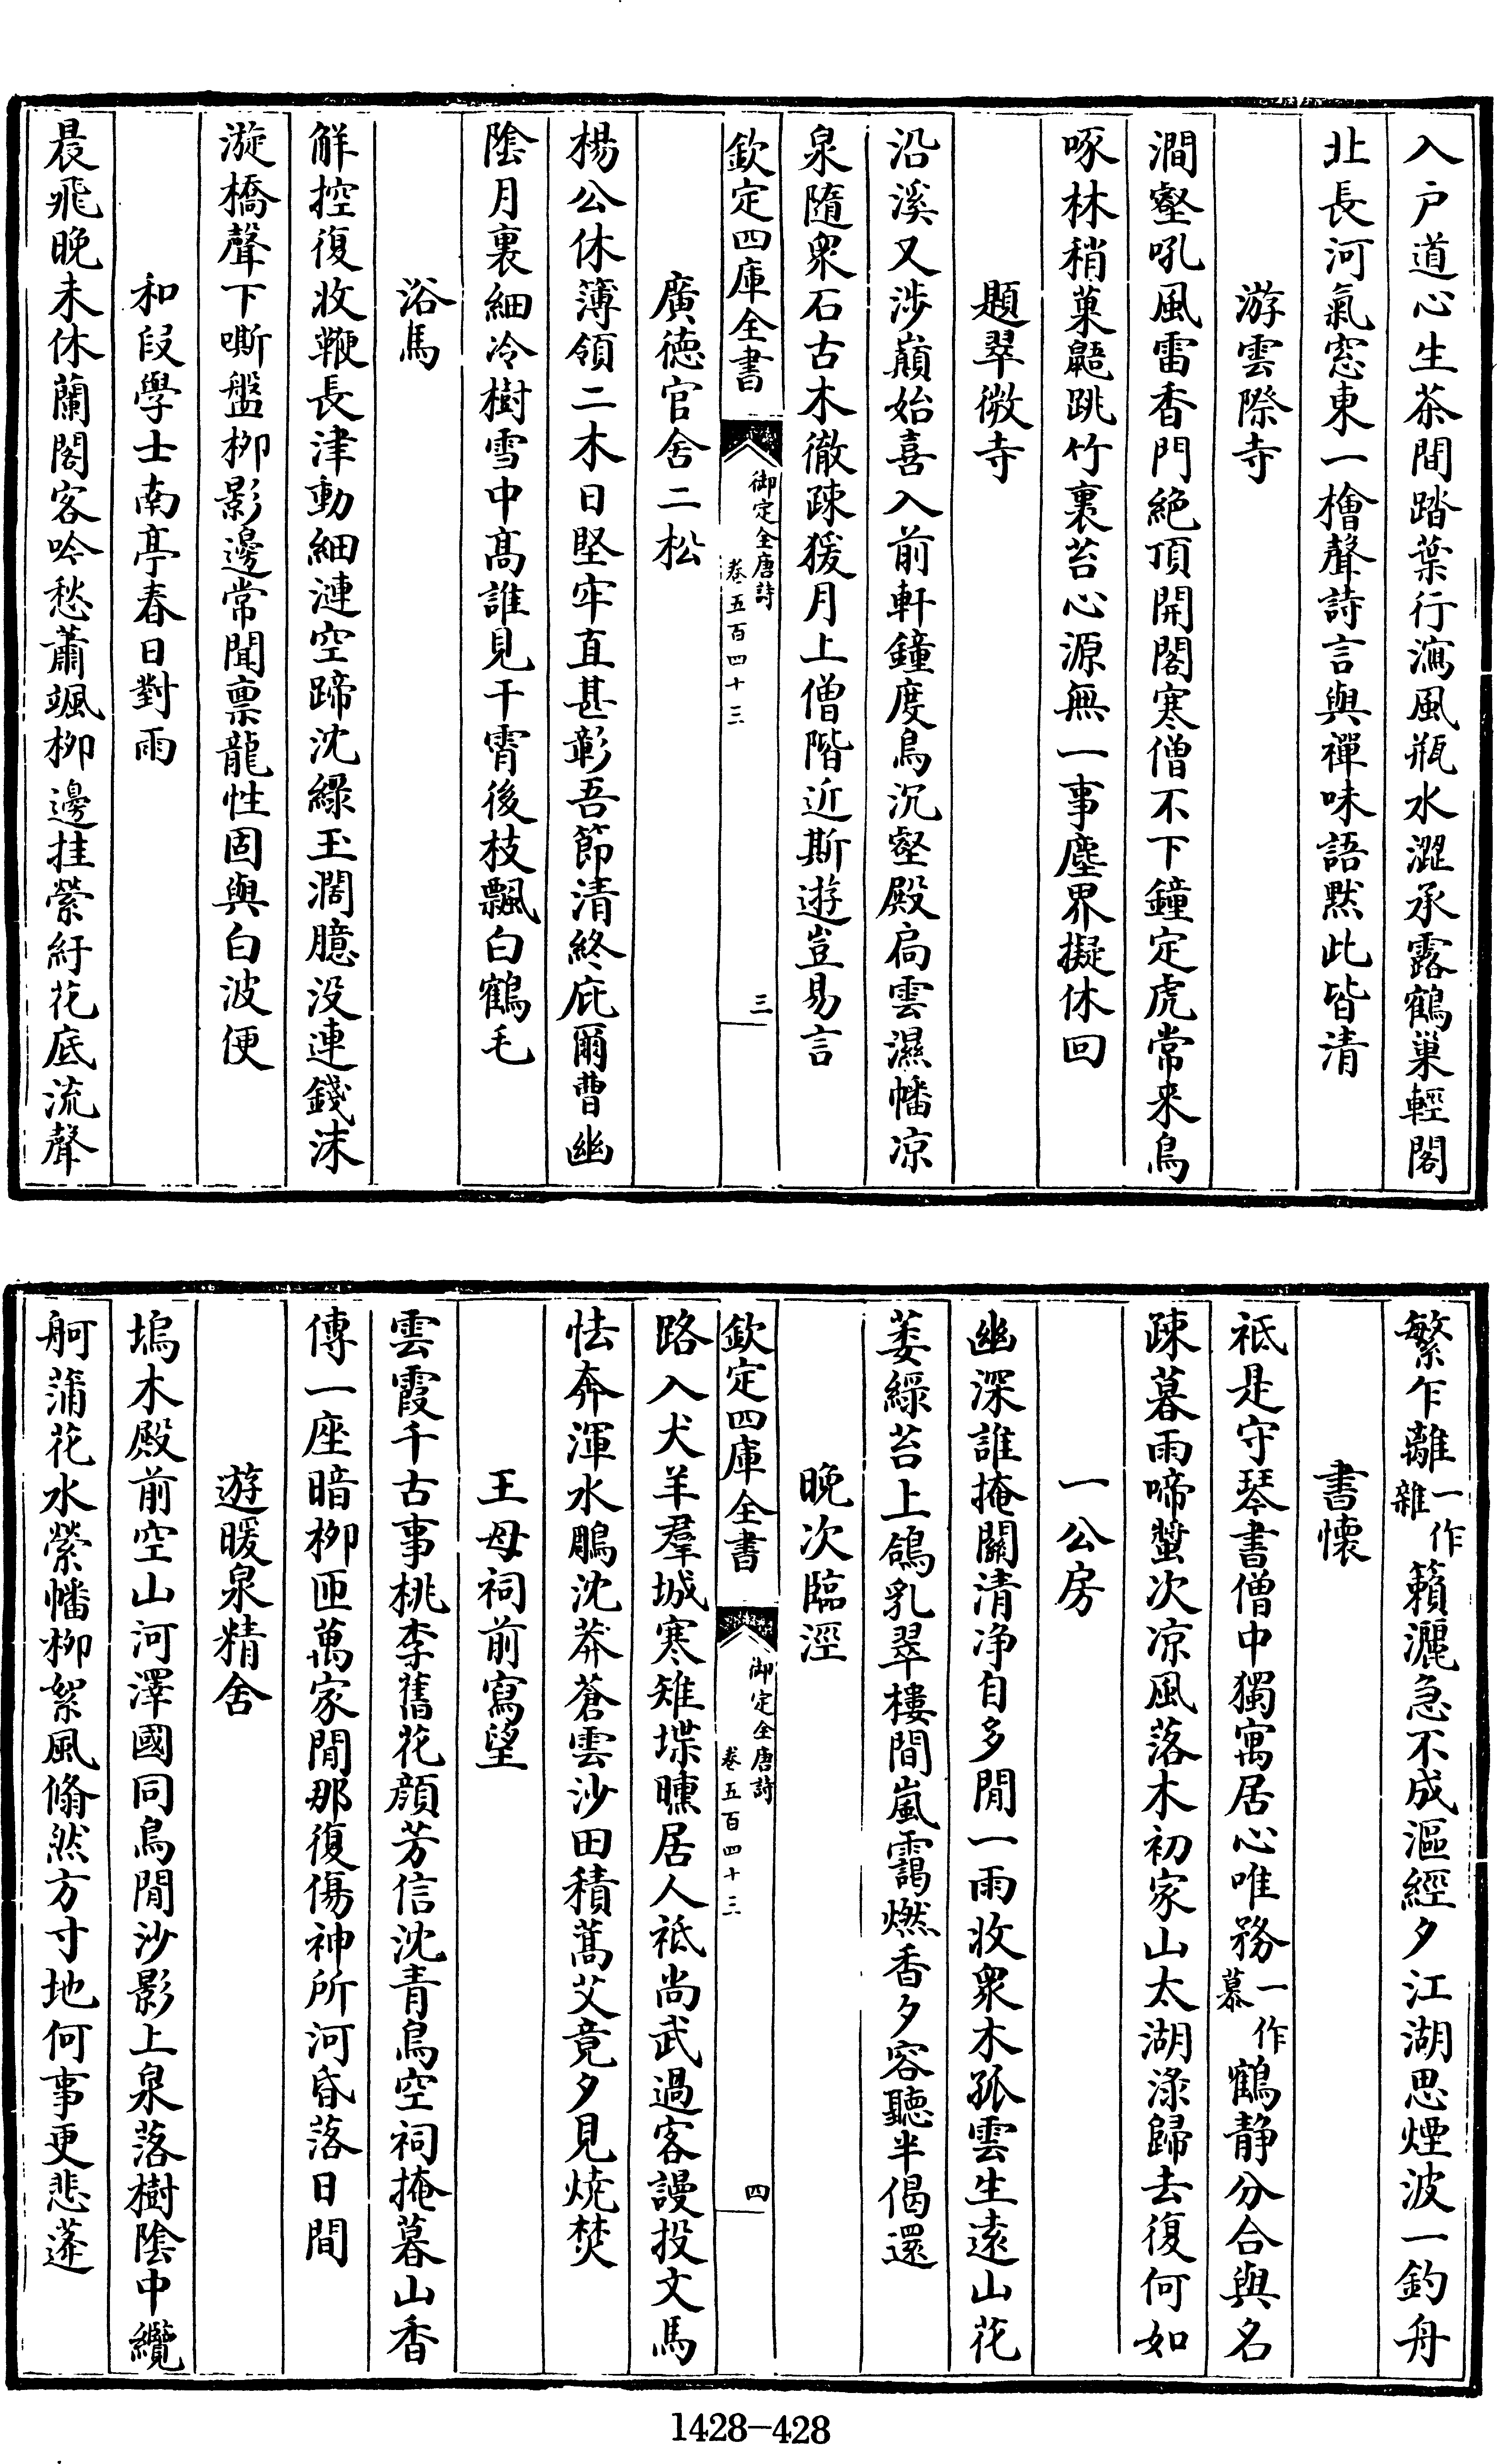 入户道心生茶間踏葉行瀉風瓶水澀承露鶴巢輕閣
北長河氣窓東一檜聲詩言與禪味語默此皆清
游雲際寺
澗壑吼風雷香門絶頂開閣寒僧不下鐘定虎常来鳥
啄林稍菓鼯跳竹裏苔心源無一事塵界擬休回
題翠微寺
沿溪又涉巔始喜入前軒鐘度鳥沉壑殿扃雲濕幡凉
泉隨衆石古木徹疎猨月上僧階近斯遊豈易言
欽定四庫全書
御定全唐詩
卷五百四十三
三
廣徳官舍二松
楊公休簿領二木日堅牢直甚彰吾節清終庇爾曹幽
陰月裏細冷樹雪中髙誰見干霄後枝飄白鶴毛
浴馬
解控復收鞭長津動細漣空蹄沈緑玉濶臆没連錢沫
漩橋聲下嘶盤栁影邊常聞禀龍性固與白波便
和段學士南亭春日對雨
晨飛晚未休蘭閣客吟愁蕭颯栁邊挂縈紆花底流聲
繁乍離一作雜籟灑急不成漚經夕江湖思煙波一釣舟
書懐
祇是守琴書僧中獨寓居心唯務一作慕鶴静分合與名
疎暮雨啼螿次凉風落木初家山太湖渌歸去復何如
一公房
幽深誰掩關清净自多閒一雨收衆木孤雲生逺山花
萎緑苔上鴿乳翠樓間嵐靄燃香夕容聽半偈還
晚次臨涇
欽定四庫全書
御定全唐詩
卷五百四十三
四
路入犬羊羣城寒雉堞曛居人祇尚武過客謾投文馬
怯奔渾水鵰沈莽蒼雲沙田積蒿艾竟夕見焼焚
王母祠前寫望
雲霞千古事桃李舊花顔芳信沈青鳥空祠掩暮山香
傳一座暗栁匝萬家閒那復傷神所河昏落日間
遊暖泉精舍
塢木殿前空山河澤國同鳥閒沙影上泉落樹陰中纜
舸蒲花水縈幡栁絮風翛然方寸地何事更悲蓬
1428-428